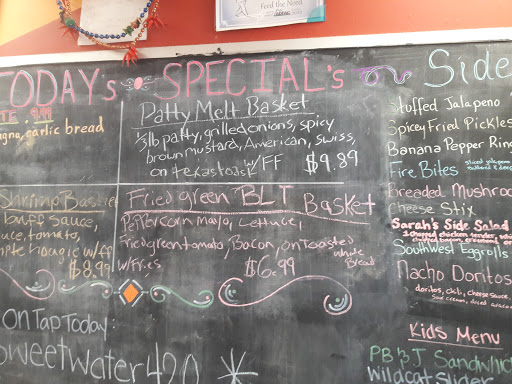 Feed the Need
TODAY's SPECIAL's
9.99
garlic bread
Patty Melt Basket
1/3lb patty, grilled onions, spicy
brown mustard, American, Swiss,
on texas toast w/FF $9.89
Shrimp Basket
buff Sauce,
tomato,
Hoagie w/ff
$8.99
Fried green BLT Basket
Peppercorn Mayo, Lettuce,
Fried green tomato, Bacon, on Toasted
White
Bread
W/FF.es $6.99
On Tap Today:
Sweetwater 420
Side
Stuffed Jalapeno
Spicy Fried Pickles
Banana Pepper Ring
Fire Bites
Breaded Mushroo
Cheese Stix
Sarah's Side Salad
Southwest Eggrolls
Nacho Doritos
doritos, chili, cheese sauce,
sour cream,
Kids Menu
PB & J Sandwich
Wildcat Slider